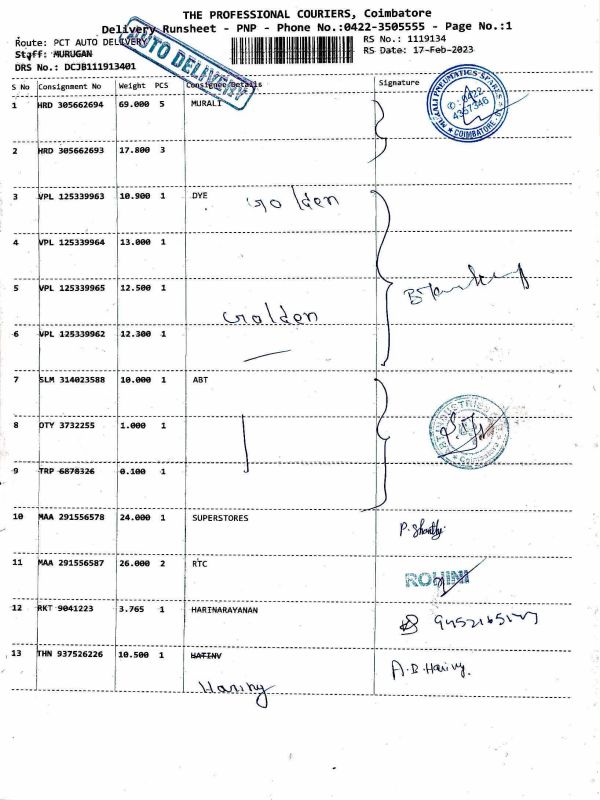 THE PROFESSIONAL COURIERS, Coimbatore
Delivery Runsheet - PNP - Phone No.:0422-3505555 - Page No.:1
Route: PCT AUTO DELIVERY
RS No.: 1119134
Staff: MURUGAN
RS Date: 17-Feb-2023
DRS No.: DCJB111913401
AUTO DELIVERY
S No Consignment No Weight PCS Consignee Details Signature
1 HRD 305662694 69.000 5 MURALI
PNEUMATICS SPARES
0422-
4357346
COIMBATORE
2 HRD 305662693 17.800 3
3 VPL 125339963 10.900 1 DYE Golden
4 VPL 125339964 13.000 1
5 VPL 125339965 12.500 1
Golden
6 VPL 125339962 12.300 1
7 SLM 314023588 10.000 1 ABT
8 OTY 3732255 1.000 1
INDUSTRIES
9 TRP 6878326 0.100 1
10 MAA 291556578 24.000 1 SUPERSTORES P. Shanthy
11 MAA 291556587 26.000 2 RTC ROHINI
12 RKT 9041223 3.765 1 HARINARAYANAN
13 THN 937526226 10.500 1 HATINV